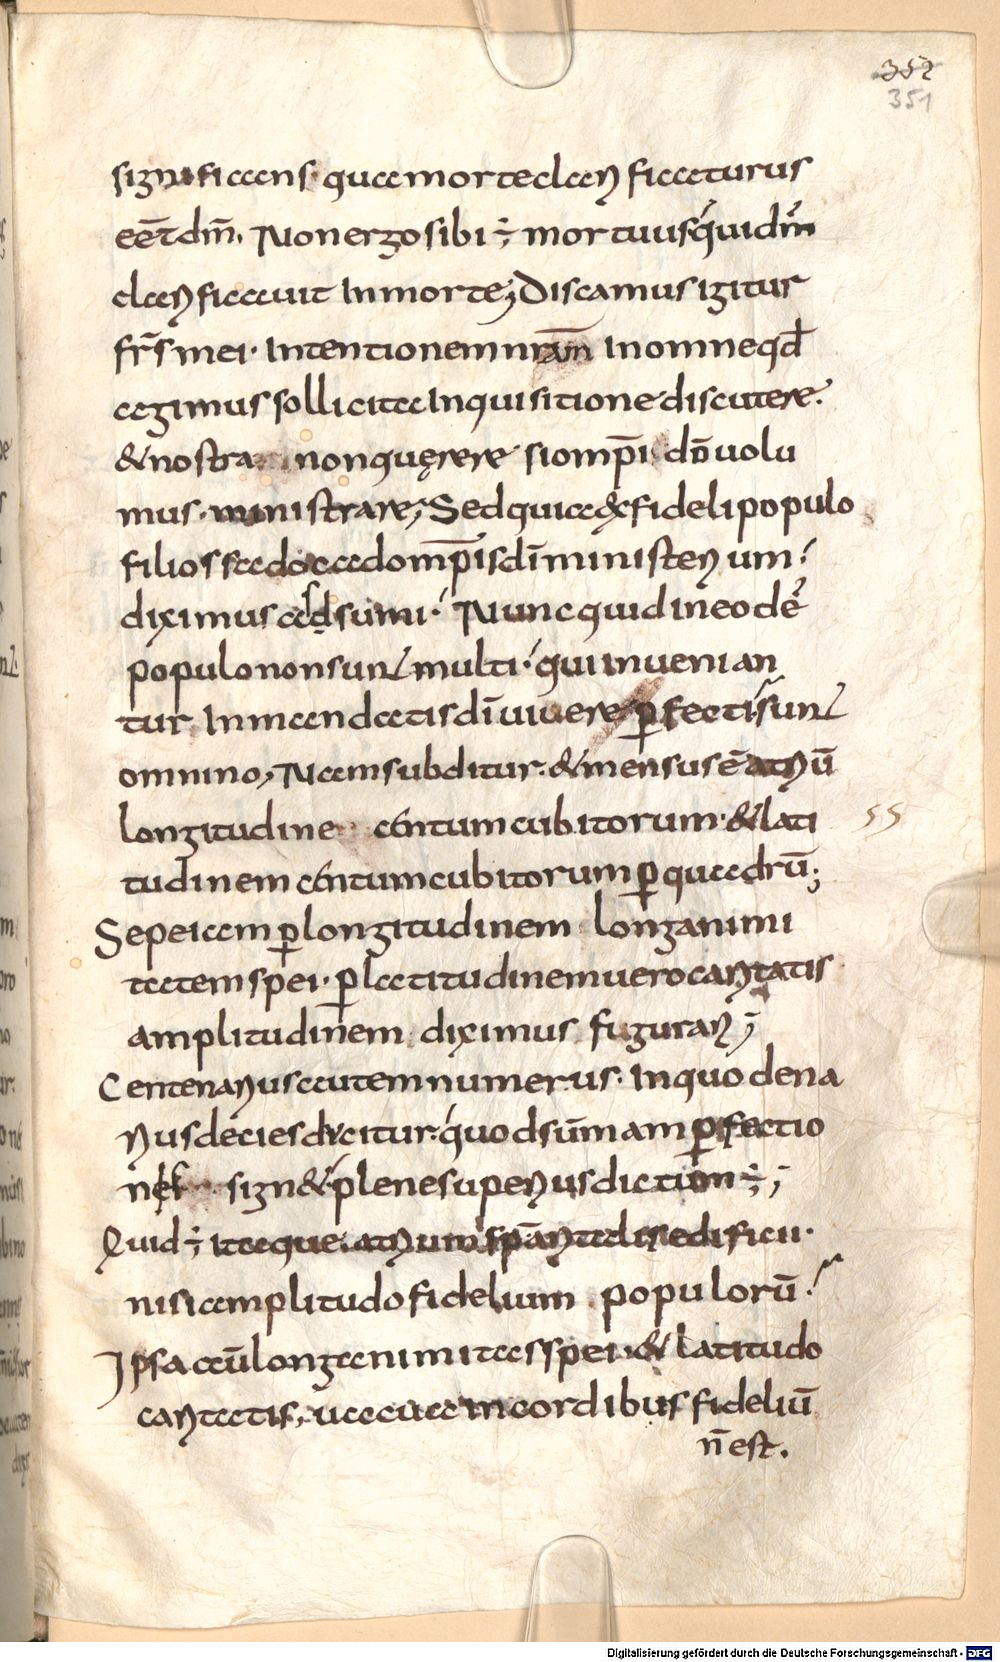 352
351
significans· qua morte clarificaturus
eēt dm̄. Non ergo sibi ÷ mortuus qui dm̄
clarificavit In morte; Discamus igitur
fr̄s mei· Intentionem nr̄am In omne qd̄
agimus sollicita Inquisitione discutere·
& nostra non quęrere si omp̄i dō volu
mus· ministrare; Sed quia ex fideli populo
filios sadoc ad omp̄is dī ministerium
diximus adsumi· Nunc quid in eode
populo non sunt multi· qui invenian
tur In mandatis dī vivere perfecti sunt
omnino, Nam subditur· & mensus ē atriū
longitudine centum cubitorum· & lati
tudinem centum cubitorum per quadrū;
Sepe iam per longitudinem longanimi
tatem spei· per latitudinem vero caritatis
amplitudinem diximus figurari;
Centenarius autem numerus· In quo dena
rius decies dicitur· quod sūmam perfectio
nis sign& plene superius dictum ÷;
Quid ÷ itaque atrium sp̄aritalis edificii·
nisi amplitudo fidelium populorū
Ipsa aeū longanimitas spei· & latitudo
caritatis, vacua In cordibus fideliū
n̄ est.
55
Digitalisierung gefördert durch die Deutsche Forschungsgemeinschaft - DFG